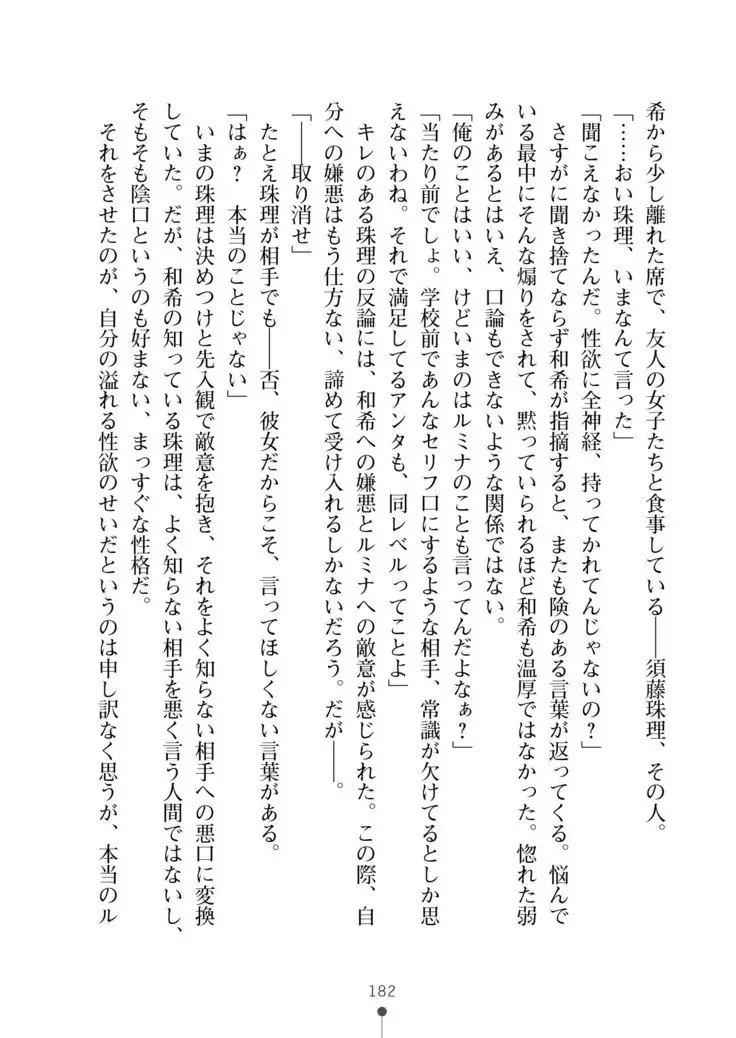 希から少し離れた席で、友人の女子たちと食事している――須藤珠理、その人。
「……おい珠理、いまなんて言った」
「聞こえなかったんだ。性欲に全神経、持ってかれてんじゃないの？」
さすがに聞き捨てならず和希が指摘すると、またも険のある言葉が返ってくる。悩んで
いる最中にそんな煽りをされて、黙っていられるほど和希も温厚ではなかった。惚れた弱
みがあるとはいえ、口論もできないような関係ではない。
「俺のことはいい、けどいまのはルミナのことも言ってんだよなぁ？」
「当たり前でしょ。学校前であんなセリフ口にするような相手、常識が欠けてるとしか思
えないわね。それで満足してるアンタも、同レベルってことよ」
キレのある珠理の反論には、和希への嫌悪とルミナへの敵意が感じられた。この際、自
分への嫌悪はもう仕方ない、諦めて受け入れるしかないだろう。だが――。
「――取り消せ」
たとえ珠理が相手でも――否、彼女だからこそ、言ってほしくない言葉がある。
「はぁ？　本当のことじゃない」
いまの珠理は決めつけと先入観で敵意を抱き、それをよく知らない相手への悪口に変換
していた。だが、和希の知っている珠理は、よく知らない相手を悪く言う人間ではないし、
そもそも陰口というのも好まない、まっすぐな性格だ。
それをさせたのが、自分の溢れる性欲のせいだというのは申し訳なく思うが、本当のル
182